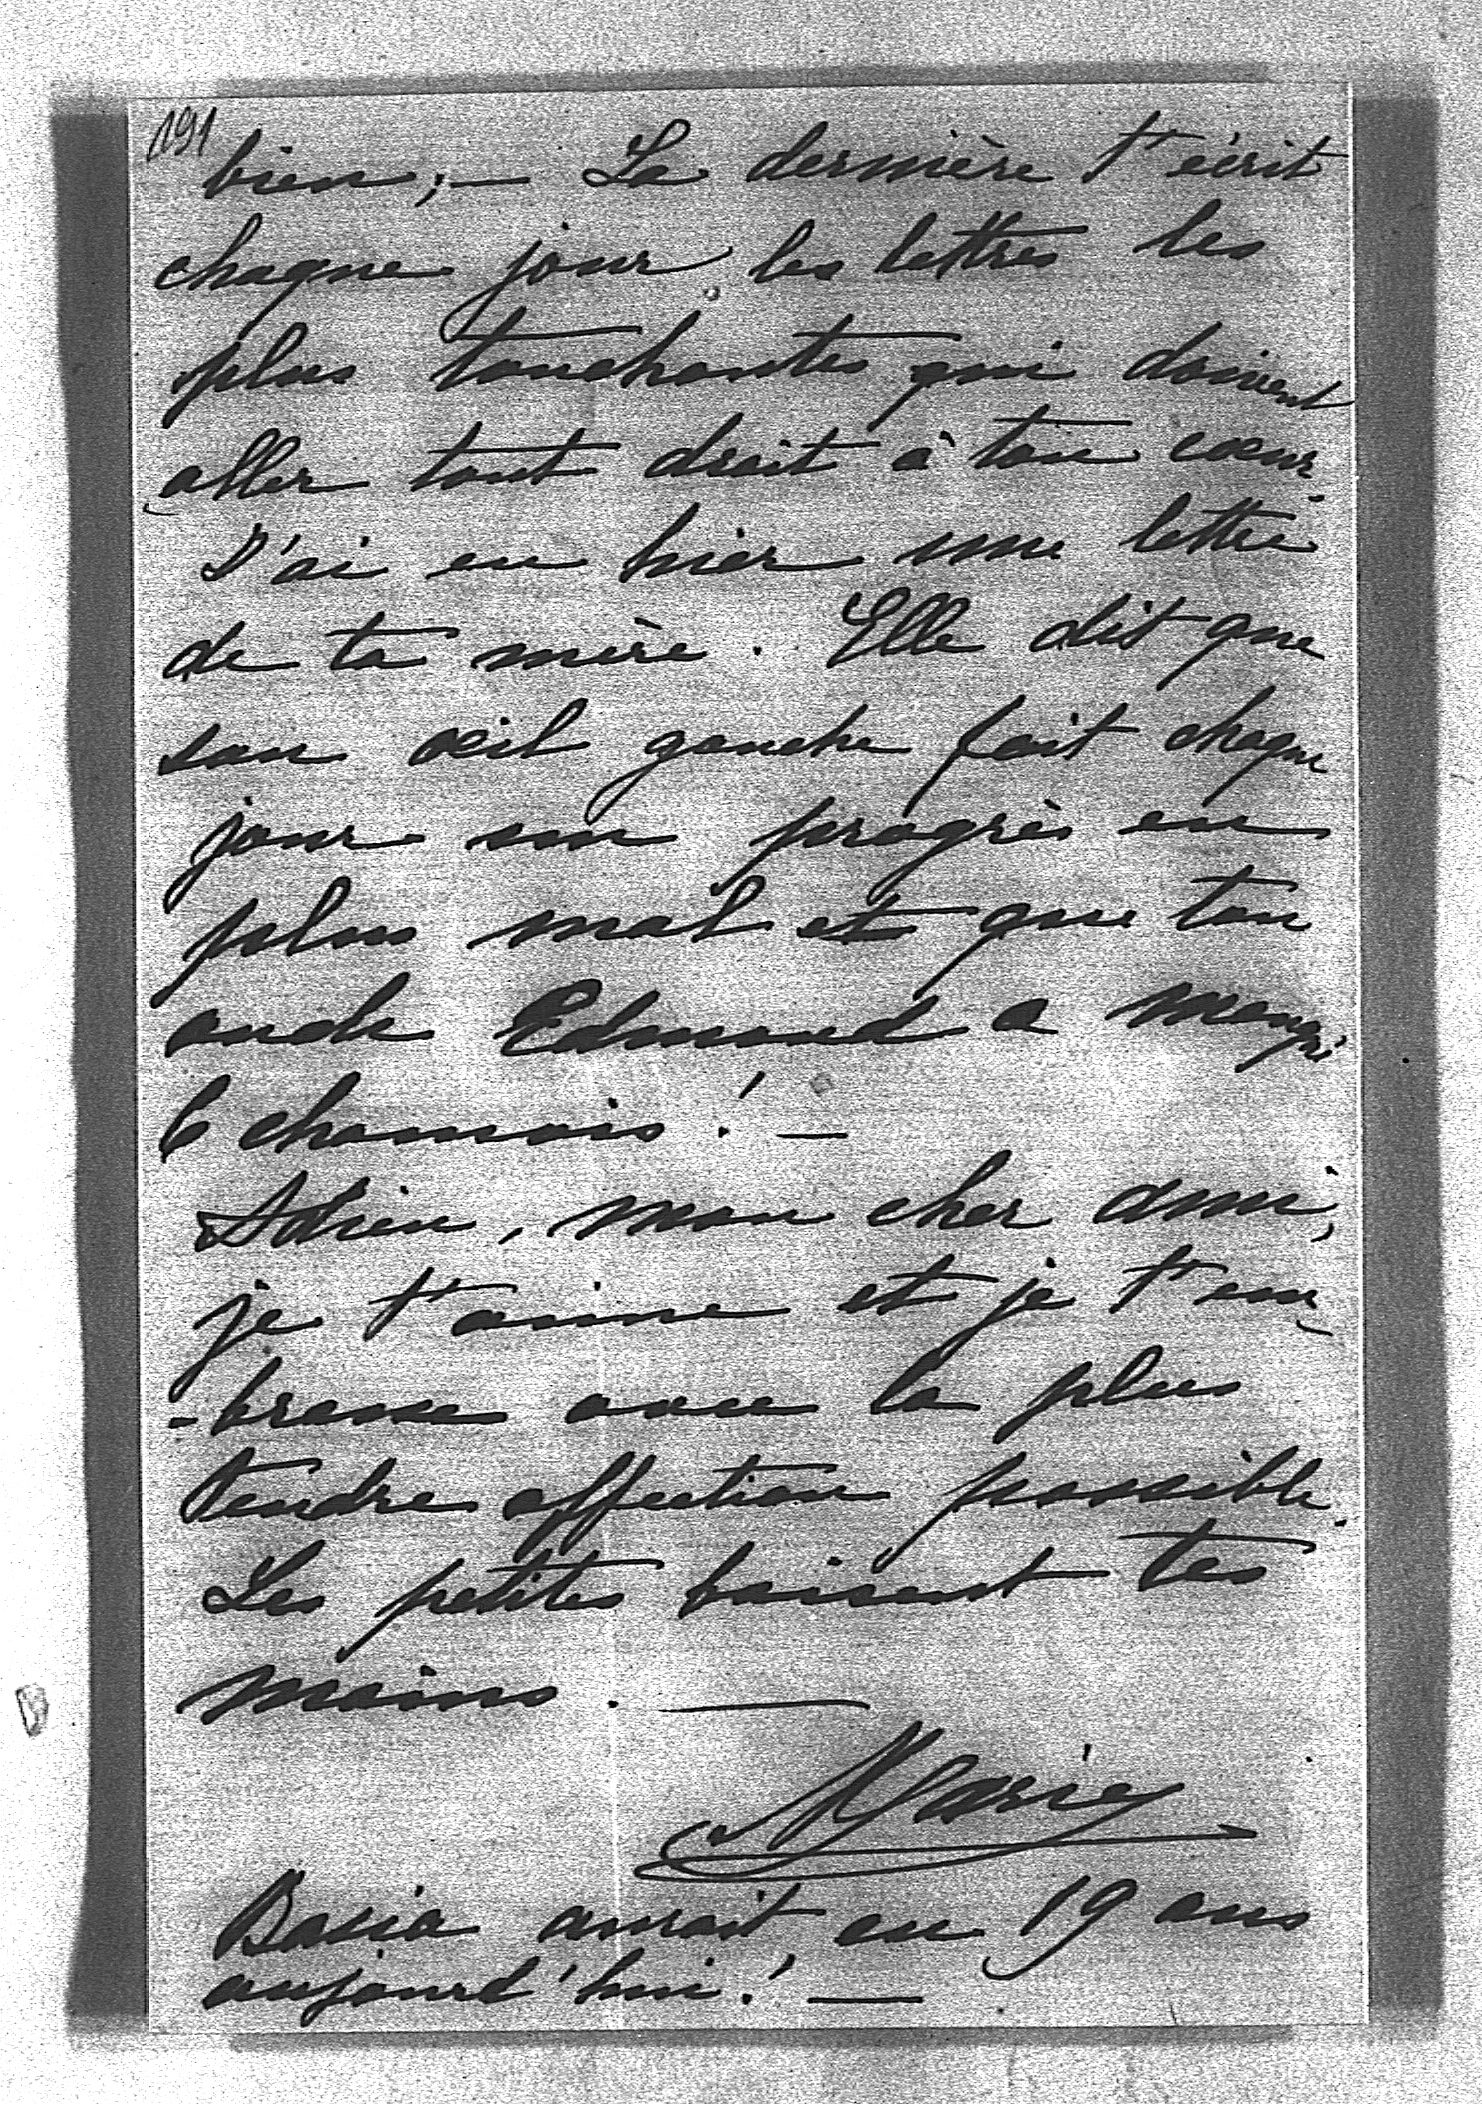 191
bien; — La dernière t'écrit
chaque jour les lettres les
plus touchantes qui doivent
aller tout droit à ton cœur.
J'ai eu hier une lettre
de ta mère. Elle dit que
son œil gauche fait chaque
jour un progrès en
plus mal et que ton
oncle Edmond a
6 chamois! —
Adieu, mon cher ami,
je t'aime et je t'em
-brasse avec la plus
tendre affection possible.
Les petites baisent tes
mains. —
Marie
Basia aurait eu 19 ans
aujourd'hui! —